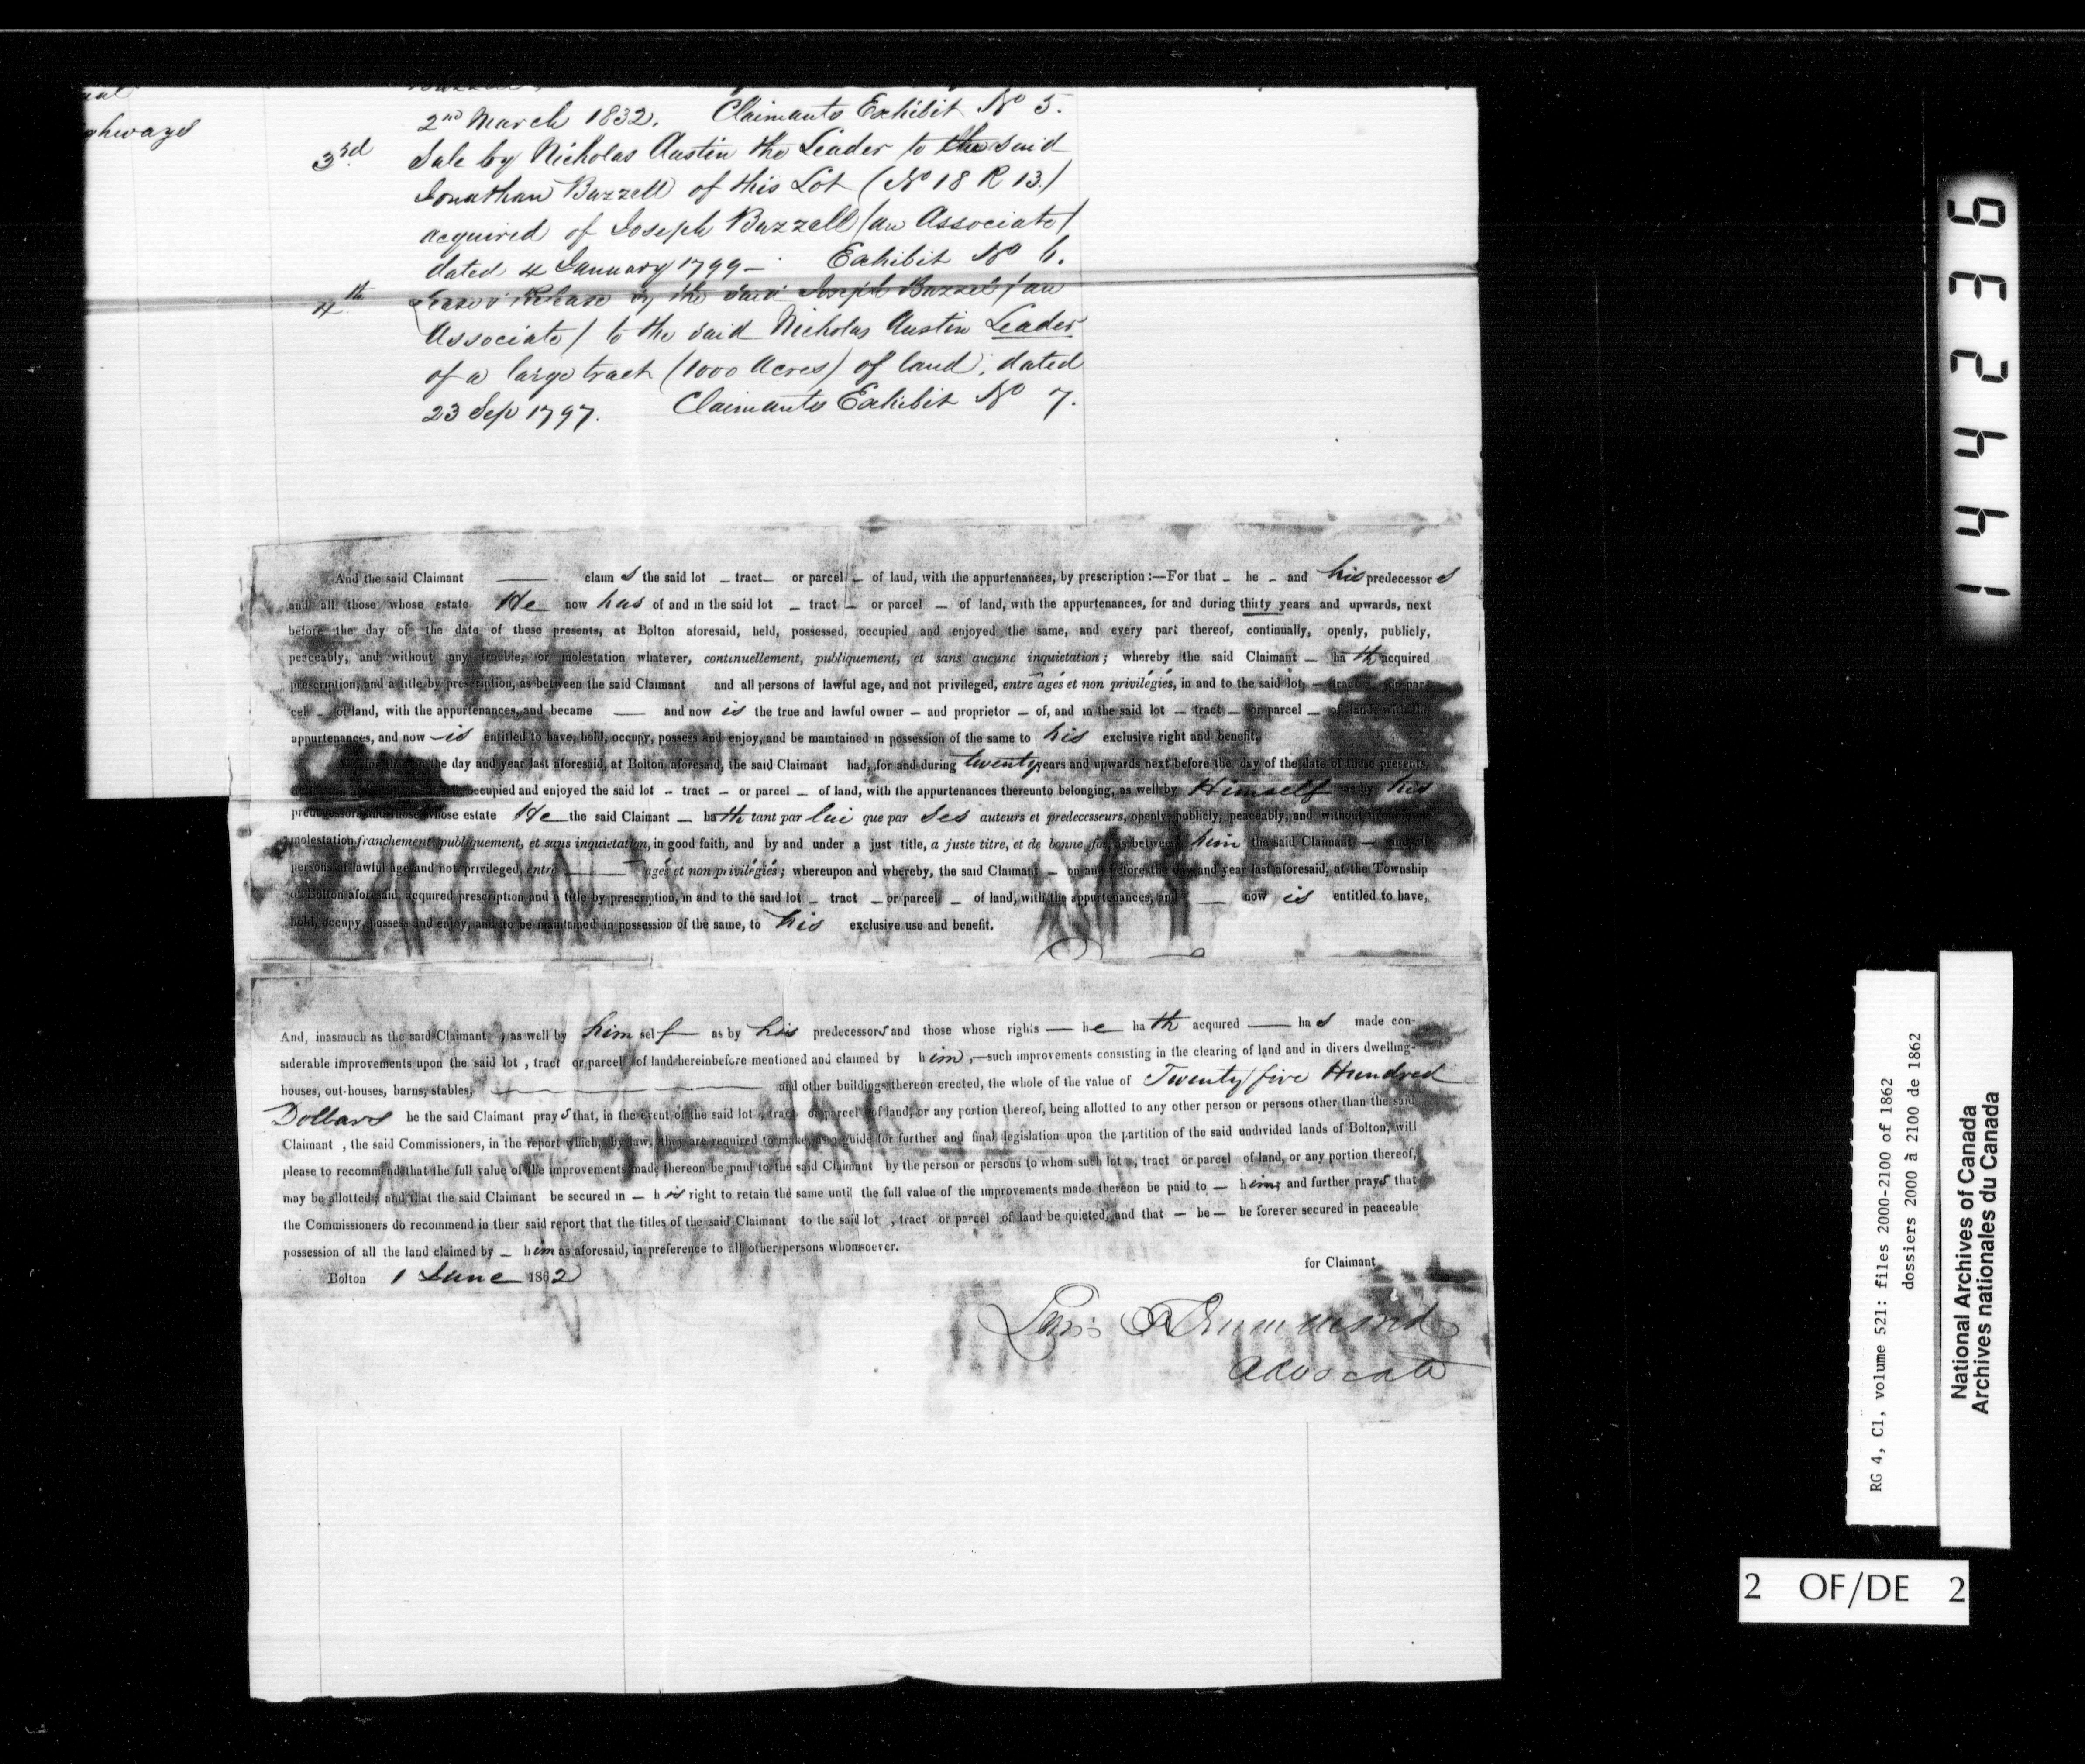 ghways
2nd March 1832. Claimants Exhibit No 5.
3rd Sale by Nicholas Austin the Leader to the said
Jonathan Buzzell of this Lot (No 18 R 13)
acquired of Joseph Buzzell (an Associate)
dated 4 January 1799 – Exhibit No 6.
4th Lease & Release by the said Joseph Buzzel (an
Associate) to the said Nicholas Austin Leader
of a large tract (1000 Acres) of land, dated
23 Sep 1797. Claimants Exhibit No 7.
And the said Claimant —— claim s the said lot – tract – or parcel – of land, with the appurtenances, by prescription:—For that – he – and his predecessor s
and all those whose estate He now has of and in the said lot – tract – or parcel – of land, with the appurtenances, for and during thirty years and upwards, next
before the day of the date of these presents, at Bolton aforesaid, held, possessed, occupied and enjoyed the same, and every part thereof, continually, openly, publicly,
peaceably, and without any trouble, or molestation whatever, continuellement, publiquement, et sans aucune inquietation; whereby the said Claimant — ha th acquired
prescription, and a title by prescription, as between the said Claimant and all persons of lawful age, and not privileged, entre agés et non privilégiés, in and to the said lot, – tract – or par-
cel – of land, with the appurtenances, and became —— and now is the true and lawful owner – and proprietor – of, and in the said lot – tract – or parcel – of land, with the
appurtenances, and now – is entitled to have, hold, occupy, possess and enjoy, and be maintained in possession of the same to his exclusive right and benefit.
And for that on the day and year last aforesaid, at Bolton aforesaid, the said Claimant had, for and during twenty years and upwards next before the day of the date of these presents,
occupied and enjoyed the said lot – tract – or parcel – of land, with the appurtenances thereunto belonging, as well by Himself as by his
predecessors and those whose estate He the said Claimant – ha th tant par lui que par Ses auteurs et predecesseurs, openly, publicly, peaceably, and without trouble or
molestation franchement, publiquement, et sans inquietation, in good faith, and by and under a just title, a juste titre, et de bonne foi, as between him the said Claimant — and all
persons of lawful age and not privileged, entre —— agés et non privilégiés; whereupon and whereby, the said Claimant – on and before the day and year last aforesaid, at the Township
of Bolton aforesaid, acquired prescription and a title by prescription, in and to the said lot – tract – or parcel – of land, with the appurtenances, and —— now is entitled to have,
hold, occupy, possess and enjoy, and to be maintained in possession of the same, to his exclusive use and benefit.
And, inasmuch as the said Claimant , as well by him self as by his predecessors and those whose rights — he ha th acquired —— ha s made con-
siderable improvements upon the said lot , tract or parcel of land hereinbefore mentioned and claimed by h im ,—such improvements consisting in the clearing of land and in divers dwelling-
houses, out-houses, barns, stables, —— and other buildings thereon erected, the whole of the value of Twenty five Hundred
Dollars he the said Claimant pray s that, in the event of the said lot , tract or parcel of land, or any portion thereof, being allotted to any other person or persons other than the said
Claimant , the said Commissioners, in the report which, by law, they are required to make, as a guide for further and final legislation upon the partition of the said undivided lands of Bolton, will
please to recommend that the full value of the improvements made thereon be paid to the said Claimant by the person or persons to whom such lot , tract or parcel of land, or any portion thereof,
may be allotted; and that the said Claimant be secured in — h is right to retain the same until the full value of the improvements made thereon be paid to — h im; and further pray s that
the Commissioners do recommend in their said report that the titles of the said Claimant to the said lot , tract or parcel of land be quieted, and that — he — be forever secured in peaceable
possession of all the land claimed by – h im as aforesaid, in preference to all other persons whomsoever.
Bolton 1 June 1862
for Claimant
Drummond
Advocate
144236
RG 4, C1, volume 521: files 2000-2100 of 1862
dossiers 2000 à 2100 de 1862
National Archives of Canada
Archives nationales du Canada
2 OF/DE 2